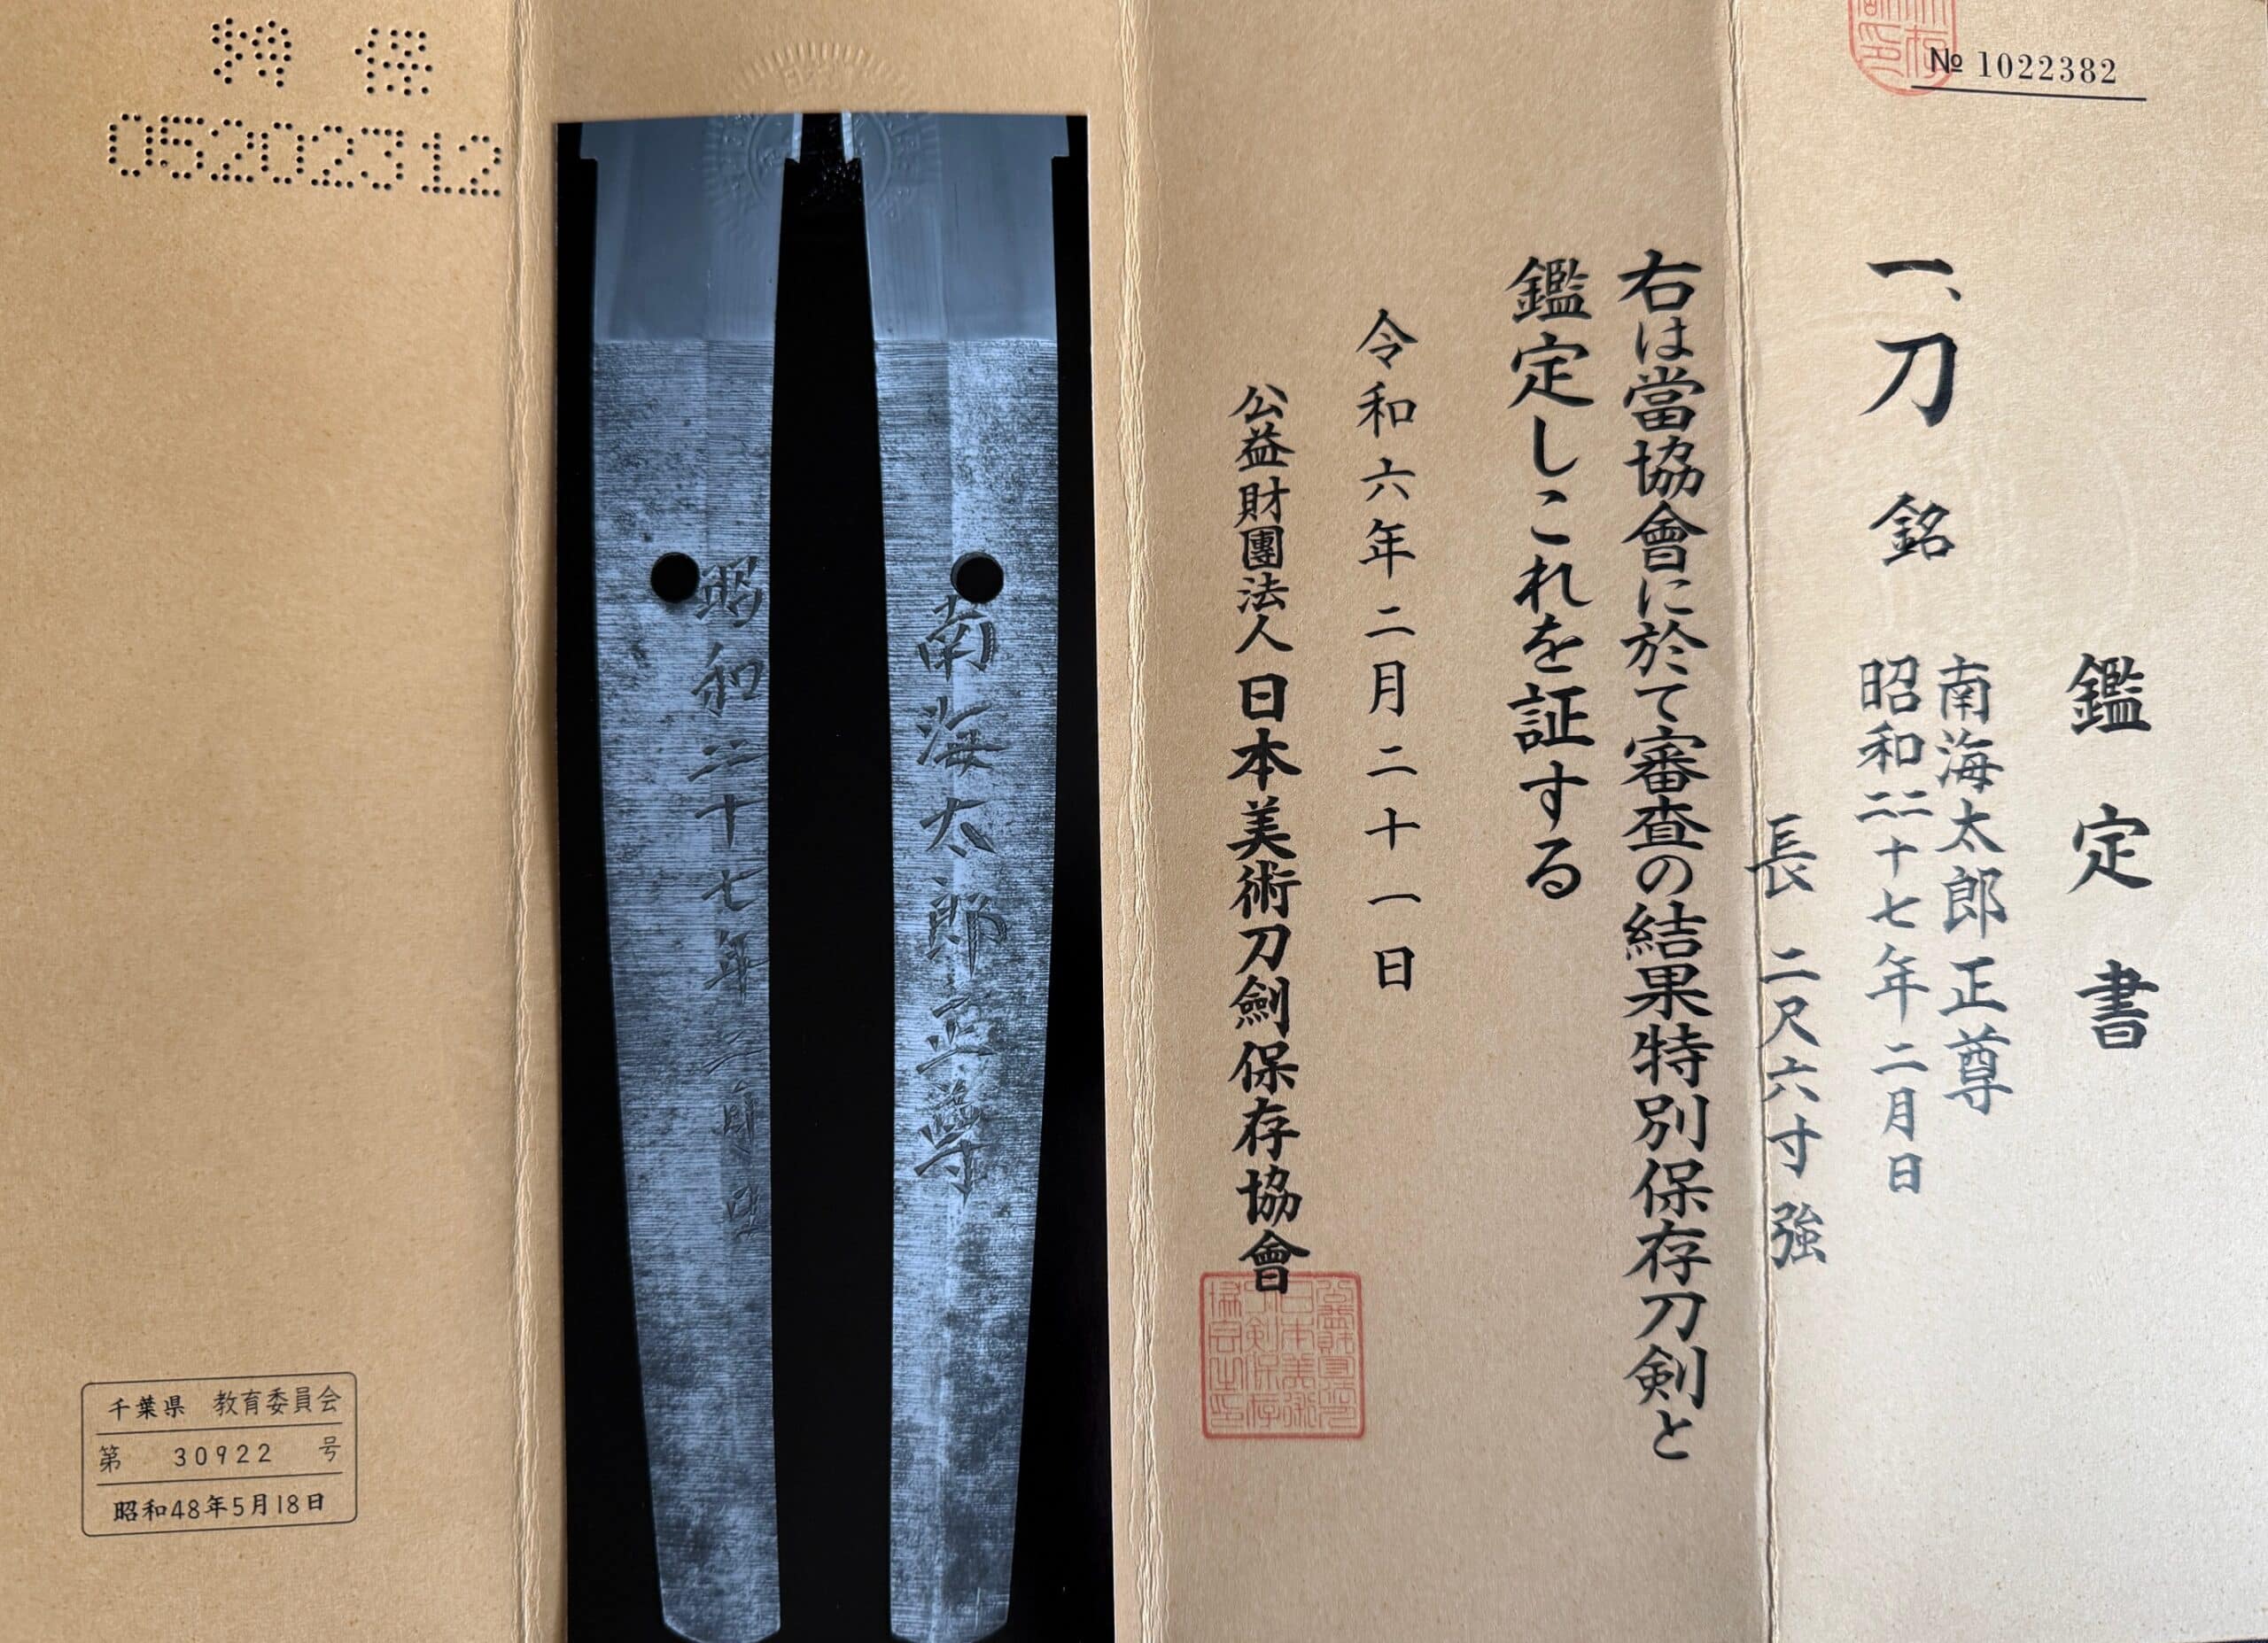 № 1022382
鑑定書
一、刀 銘
南海太郎正尊
昭和二十七年二月日
長 二尺六寸強
右は當協會に於て審査の結果特別保存刀剣と
鑑定しこれを証する
令和六年二月二十一日
公益財團法人日本美術刀劍保存協會
南海太郎正尊
昭和二十七年二月日
特保
05202312
千葉県 教育委員会
第 30922 号
昭和48年5月18日